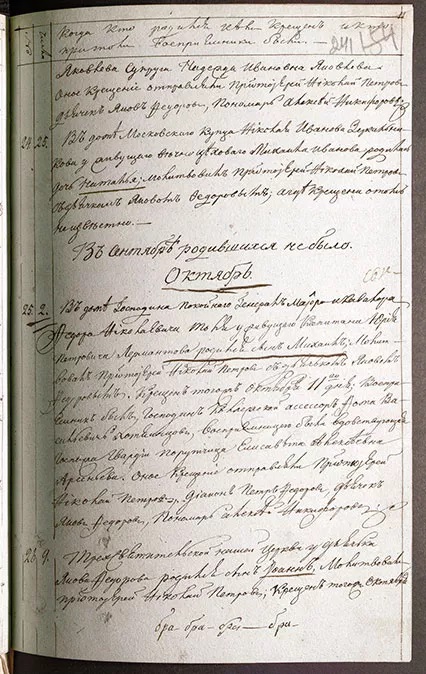 Когда кто родился и кем крещен и кто
при том Восприемники были.
Яковлева Супруга Надежда Ивановна Яковлева
Оное Крещение отправляли Протоиерей Николай Петров
Дьячек Яков Федоров, Пономарь Алексей Никифоров
24. 25. Въ доме Московскаго Купца Николая Иванова
у живущего Михаила Иванова родилась
дочь Наталья; молитвовалъ Протоиерей Николай Петров
съ дьячкомъ Яковомъ Федоровымъ; а где крещена
не известно.
Въ Сентябрѣ родившихся не было.
Октябрь
25. 2. Въ доме Господина покойнаго Генералъ Майора и Кавалера
Федора Николаевича Толя у живущаго Капитана Юрия
Петровича Лермантова родился сынъ Михаилъ; Молит-
вовалъ Протоиерей Николай Петров съ дьячкомъ Яковомъ
Федоровымъ, Крещенъ тогожъ Октября 11 дня, Воспри-
емникъ былъ Господинъ Коллежской ассесоръ Фома Ва-
сильевичъ Хотяинцовъ, Восприемницею была вдовствующая
Госпожа Гвардии Порутчица Елисавета Алексеевна
Арсеньева. Оное Крещение отправляли Протоиерей
Николай Петров, Дьяконъ Петръ Федоров, дьячек
Яковъ Федоров, Пономарь Алексей Никифоров.
26. 9. Трехсвятительской нашей Церкви у дьячка
Якова Федорова родился сынъ Иванъ, Молитвовалъ
протоиерей Николай Петров, Крещенъ тогожъ Октября